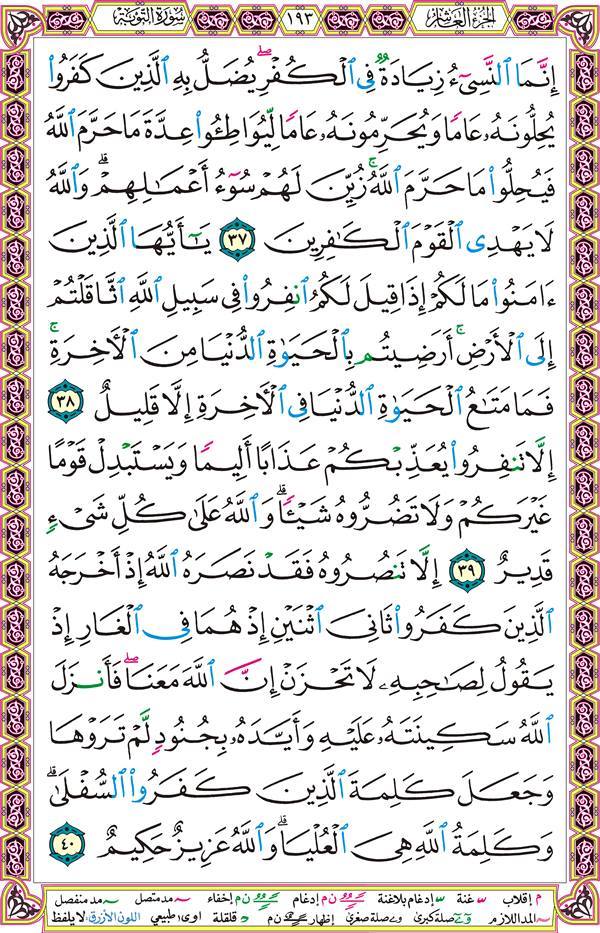 الجزء العاشر
١٩٣
سورة التوبة
إِنَّمَا ٱلنَّسِىٓءُ زِيَادَةٌ فِى ٱلْكُفْرِ ۖ يُضَلُّ بِهِ ٱلَّذِينَ كَفَرُوا۟
يُحِلُّونَهُۥ عَامًا وَيُحَرِّمُونَهُۥ عَامًا لِّيُوَاطِـُٔوا۟ عِدَّةَ مَا حَرَّمَ ٱللَّهُ
فَيُحِلُّوا۟ مَا حَرَّمَ ٱللَّهُ ۚ زُيِّنَ لَهُمْ سُوٓءُ أَعْمَـٰلِهِمْ ۗ وَٱللَّهُ
لَا يَهْدِى ٱلْقَوْمَ ٱلْكَـٰفِرِينَ ٣٧ يَـٰٓأَيُّهَا ٱلَّذِينَ
ءَامَنُوا۟ مَا لَكُمْ إِذَا قِيلَ لَكُمُ ٱنفِرُوا۟ فِى سَبِيلِ ٱللَّهِ ٱثَّاقَلْتُمْ
إِلَى ٱلْأَرْضِ ۚ أَرَضِيتُم بِٱلْحَيَوٰةِ ٱلدُّنْيَا مِنَ ٱلْـَٔاخِرَةِ ۚ
فَمَا مَتَـٰعُ ٱلْحَيَوٰةِ ٱلدُّنْيَا فِى ٱلْـَٔاخِرَةِ إِلَّا قَلِيلٌ ٣٨
إِلَّا تَنفِرُوا۟ يُعَذِّبْكُمْ عَذَابًا أَلِيمًا وَيَسْتَبْدِلْ قَوْمًا
غَيْرَكُمْ وَلَا تَضُرُّوهُ شَيْـًٔا ۗ وَٱللَّهُ عَلَىٰ كُلِّ شَىْءٍ
قَدِيرٌ ٣٩ إِلَّا تَنصُرُوهُ فَقَدْ نَصَرَهُ ٱللَّهُ إِذْ أَخْرَجَهُ
ٱلَّذِينَ كَفَرُوا۟ ثَانِىَ ٱثْنَيْنِ إِذْ هُمَا فِى ٱلْغَارِ إِذْ
يَقُولُ لِصَـٰحِبِهِۦ لَا تَحْزَنْ إِنَّ ٱللَّهَ مَعَنَا ۖ فَأَنزَلَ
ٱللَّهُ سَكِينَتَهُۥ عَلَيْهِ وَأَيَّدَهُۥ بِجُنُودٍ لَّمْ تَرَوْهَا
وَجَعَلَ كَلِمَةَ ٱلَّذِينَ كَفَرُوا۟ ٱلسُّفْلَىٰ ۗ
وَكَلِمَةُ ٱللَّهِ هِىَ ٱلْعُلْيَا ۗ وَٱللَّهُ عَزِيزٌ حَكِيمٌ ٤٠
م إقلاب غنة إدغام بلاغنة ن م إدغام ن م إخفاء مد متصل مد منفصل
المد اللازم صلة كبرى صلة صغرى إظهار ن م قلقلة اوى طبيعي اللون الأزرق: لا يلفظ